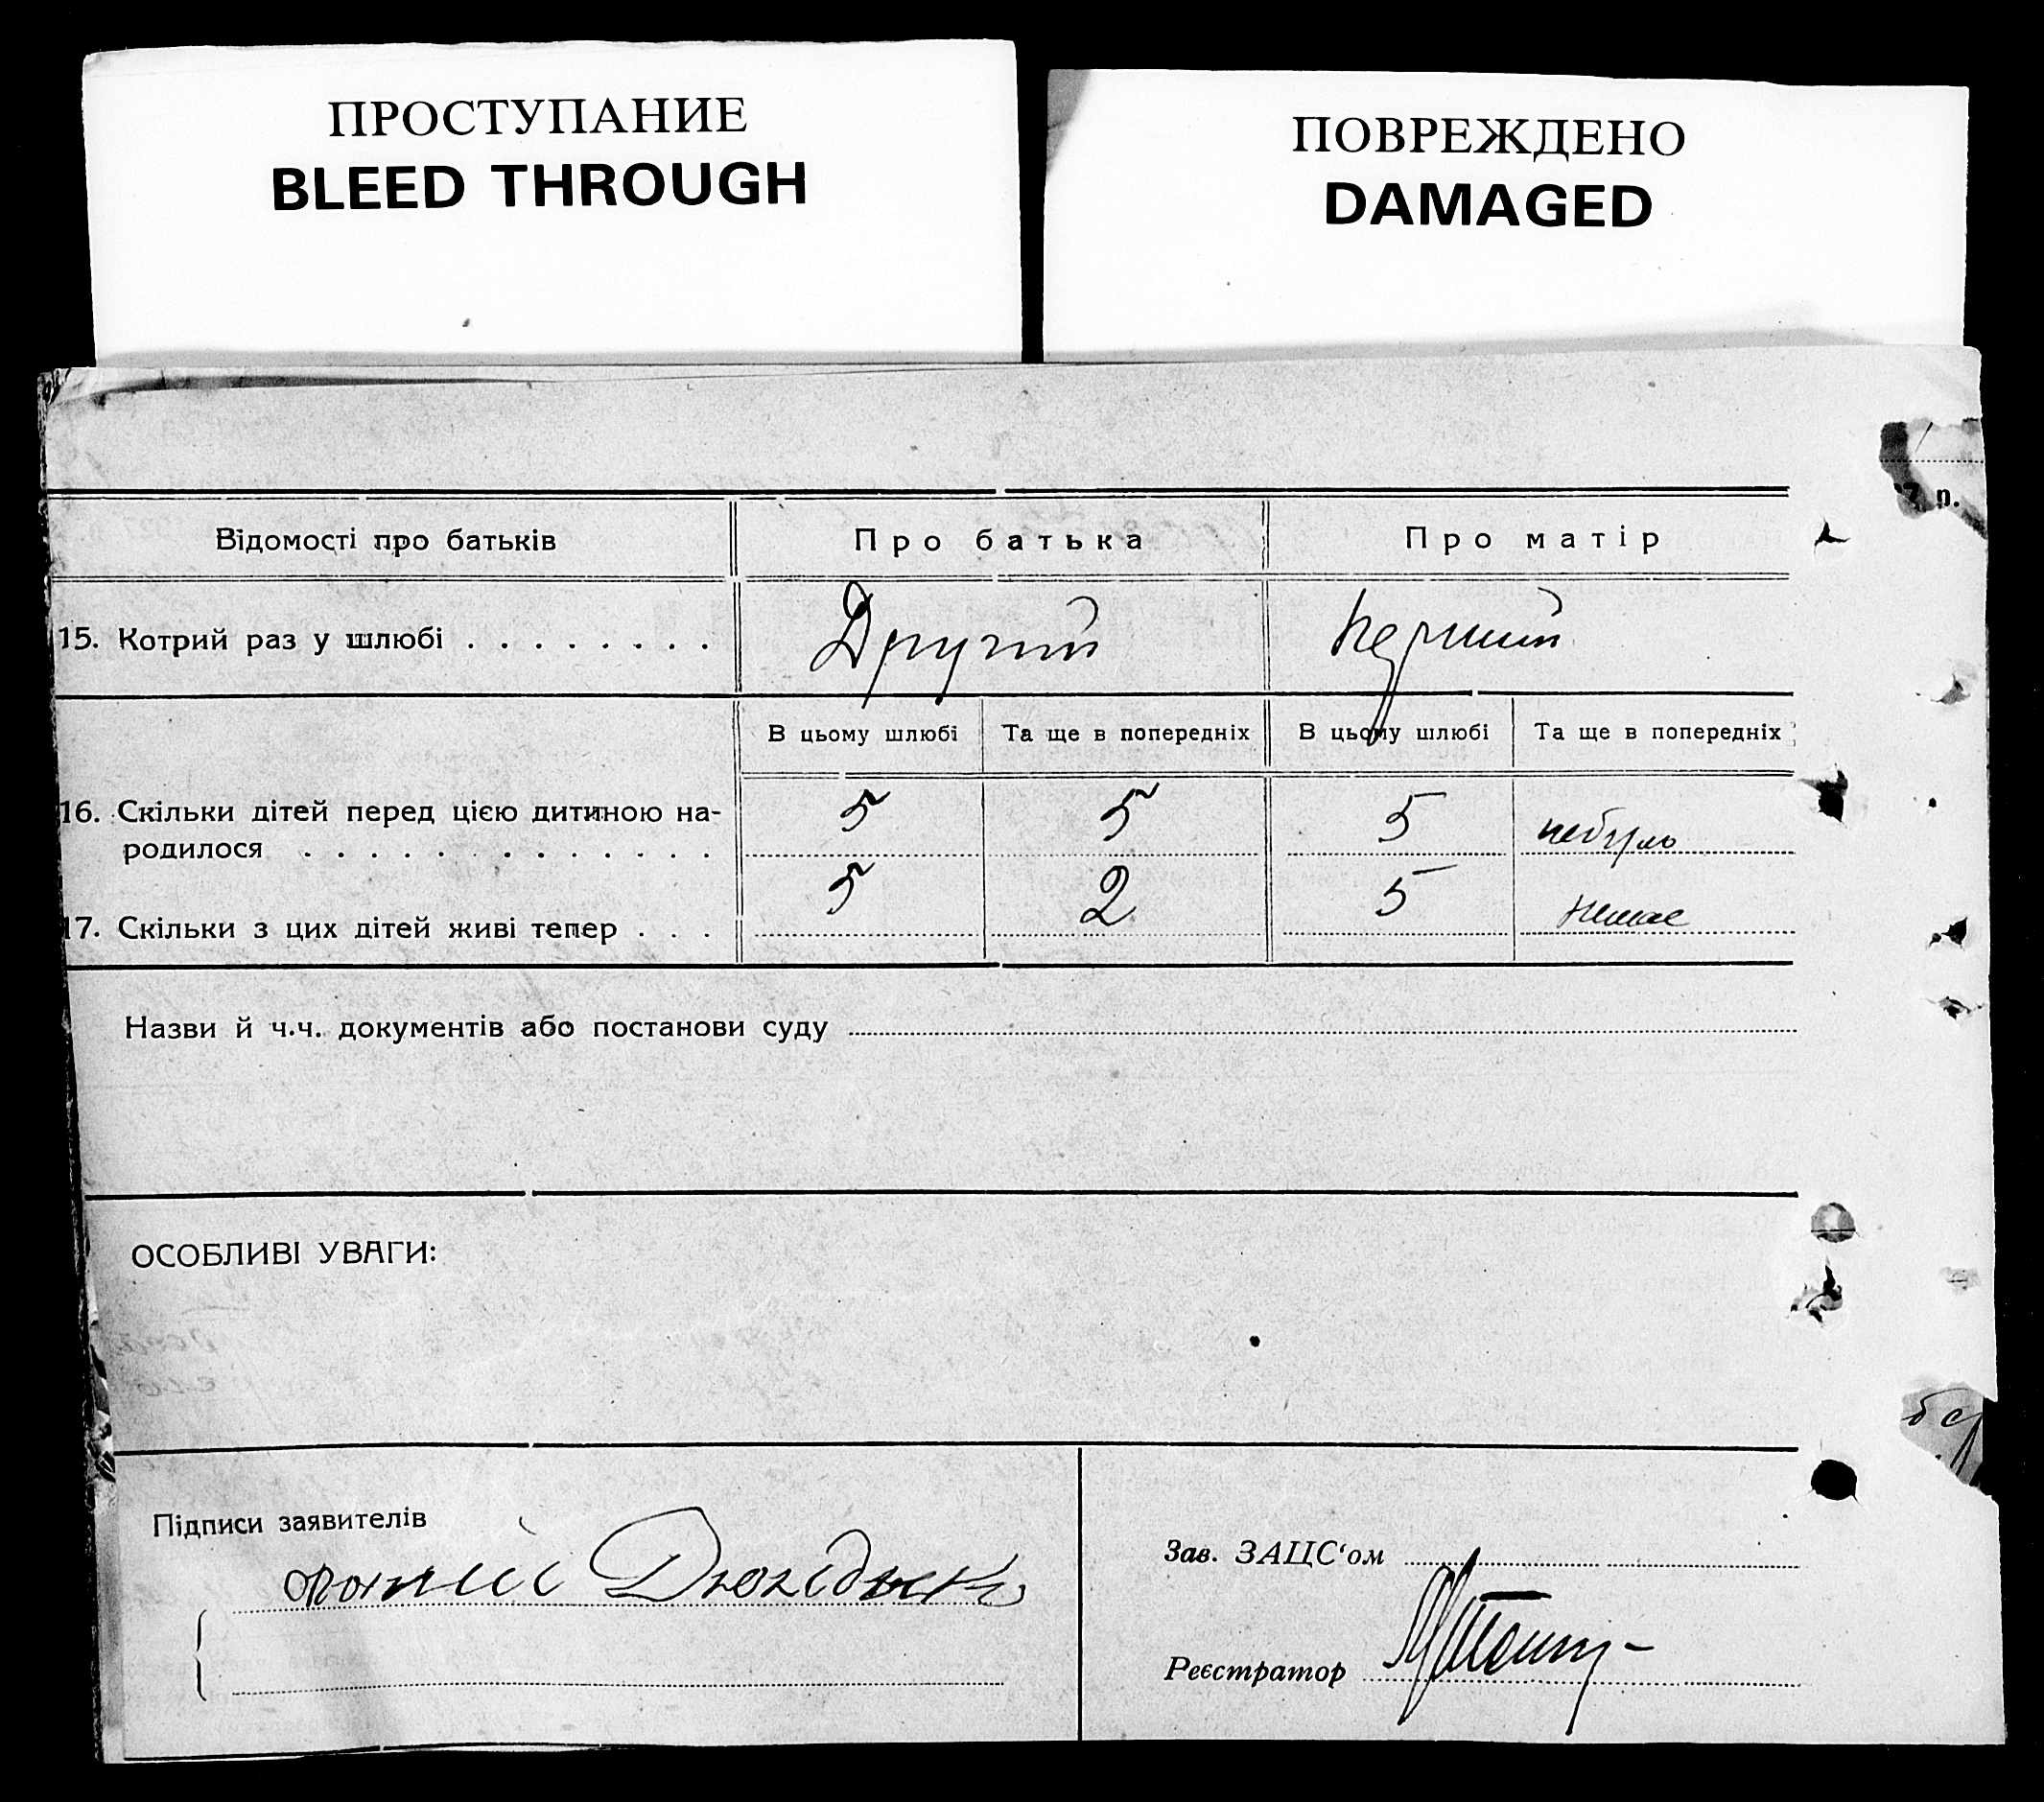 ПРОСТУПАНИЕ
BLEED THROUGH
ПОВРЕЖДЕНО
DAMAGED
7 р.
Відомості про батьків Про батька Про матір
15. Котрий раз у шлюбі . . . . . . . . Другий Перший
В цьому шлюбі Та ще в попередніх В цьому шлюбі Та ще в попередніх
16. Скільки дітей перед цією дитиною на-
родилося . . . . . . . . . . . . . 5 5 5 небуло
17. Скільки з цих дітей живі тепер . . . 5 2 5 немає
Назви й ч.ч. документів або постанови суду
ОСОБЛИВІ УВАГИ:
Підписи заявителів
Зав. ЗАЦС'ом
Реєстратор